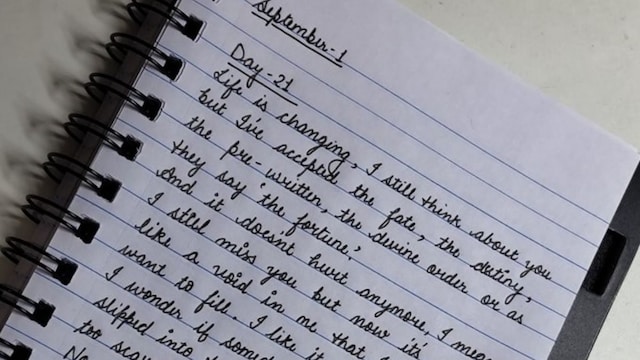 September-1
Day-21
Life is changing, I still think about you
but I've accepted the fate, the destiny,
the pre-written, the devine order or as
they say 'the fortune.'
And it doesnt hurt anymore. I mean
I still miss you but now it's
like a void in me that I
want to fill. I like it
I wonder if
slipped into
too